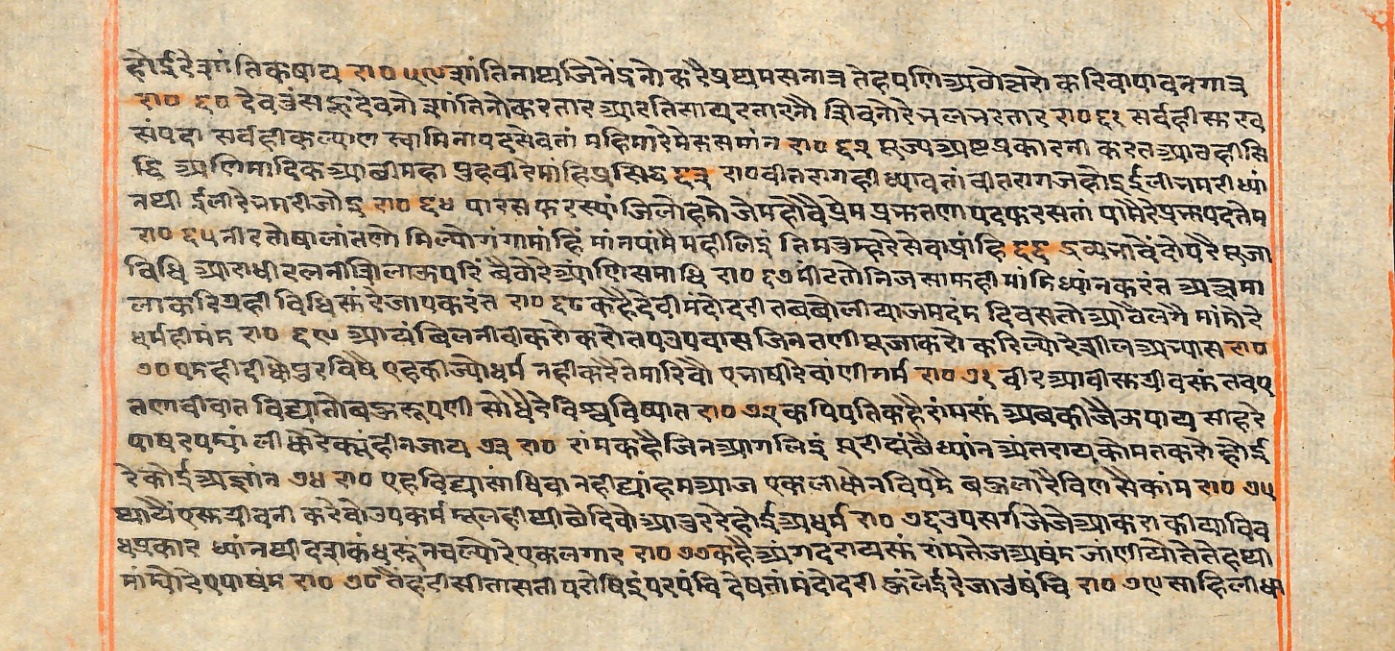 होईरेशांतिकषाय रा० ५९ शांतिनाथजिनेंद्रनो करैप्रथमसनात्र तेहपणिआगेसरो करिवापावनगात्र
रा० ६० देवहुंसहुदेवनो शांतिनोकरतार आरतिसायरतारनौ शिवनोरेभलभरतार रा० ६१ सर्वहीसुख
संपदा सर्वहीकल्याण स्वामिनापदसेवतां महिमारेमेरुसमांन रा० ६२ पूजाअष्टप्रकारनी करतआवहीसि
द्धि अणिमादिकआबीमहा प्रहवीरेमांहिप्रसिद्ध ६३ रा० वीतरागहीध्यावतां वीतरागजहोइ ईलीभमरीध्यां
नथी ईलीरेभमरीजोइ रा० ६४ पारसफरस्यांजिलोहनो हेमहोवैप्रेम प्रभुतणापदफरसतां पामैरेप्रभुपदतेम
रा० ६५ नीरतोषालांतणो मिल्योगंगामांहिं मांनपांमैमहीलिइं तिमतुम्हरेसेवाप्रांहि ६६ द्रव्यनावैंदोपरैपूजा
विधि आराधी रत्ननीशिलाऊपरिं बैवोरेआंणिसमाधि रा० ६७ मींटतोनिजसाम्हही मांडिध्यांनकरंत अक्षमा
लाकरिग्रही विधिसुंरेजापकरंत रा० ६८ कहैदेवीमदोदरी तबबोलीयाजमदंम दिवसतोआठैलगै मांमोरे
धर्महीमंम रा० ६९ आयंबिलनीवीकरो करोतपउपवास जिनतणीपूजाकरो करिल्योरेशीलअभ्यास रा०
७० एमहीदीधोपुरविषै एहकीज्योधर्म नहीकरैतेमारिवौ एभाषीरेवांणीमार्म रा० ७१ वीरआवीसुग्रीवसुं तवए
तणवीवात विद्यातोबहुरूपणी सोधैरेविश्वविष्यात रा० ७२ कपिपतिकहैरांमसुं अबकीजैऊपाय सीहरे
पाषरपम्यां लीधोरेक्युंहीनजाय ७३ रा० रांमकहैजिनआगलिइं पूरीह्युंछैध्यांन अंतरायकोमतकरो होई
रेकोईअज्ञांन ७४ रा० एहविद्यासांधिवा नहीद्यांहमआज एकलाधोनविपमै बहुलारैविणसैकांम रा० ७५
थायैंएसुग्रीवनी करेवोउपकर्म मूलहीथीछेदिवो आतुररेहोईअधर्म रा० ७६ उपसर्गजेजेआकरा कीयाविव
धप्रकार ध्यांनथीदशकंधरूं नचल्योरेएकलगार रा० ७७ कहैअंगदरायसुं रांमतेजअषंम जांणीयोतेतेहथी
मांम्योरेएपाषंम रा० ७८ तैहरीसीतासती परोषिइंपरपंचि देषतांमंदोदरी हुंलेईरेजाउंषंचि रा० ७९ साहिलीधा